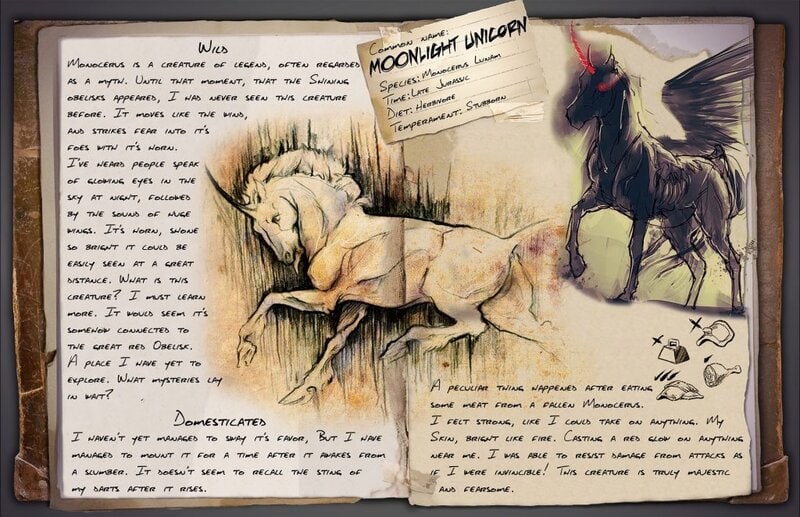 Wild
Monocerus is a creature of legend, often regarded
as a myth. Until that moment, that the Shining
obelisks appeared, I had never seen this creature
before. It moves like the wind,
and strikes fear into it's
foes with it's horn.
I've heard people speak
of glowing eyes in the
sky at night, followed
by the sound of huge
wings. It's horn, shone
so bright it could be
easily seen at a great
distance. What is this
creature? I must learn
more. It would seem it's
somehow connected to
the great red Obelisk.
A place I have yet to
explore. What mysteries lay
in wait?
Domesticated
I haven't yet managed to sway it's favor, But I have
managed to mount it for a time after it awakes from
a slumber. It doesn't seem to recall the sting of
my darts after it rises.
Common name:
Moonlight Unicorn
Species: Monocerus Lunam
Time: Late Jurassic
Diet: Herbivore
Temperament: Stubborn
A peculiar thing happened after eating
some meat from a fallen Monocerus.
I felt strong, like I could take on anything. My
Skin, bright like fire. Casting a red glow on anything
near me. I was able to resist damage from attacks as
if I were invincible! This creature is truly majestic
and fearsome.